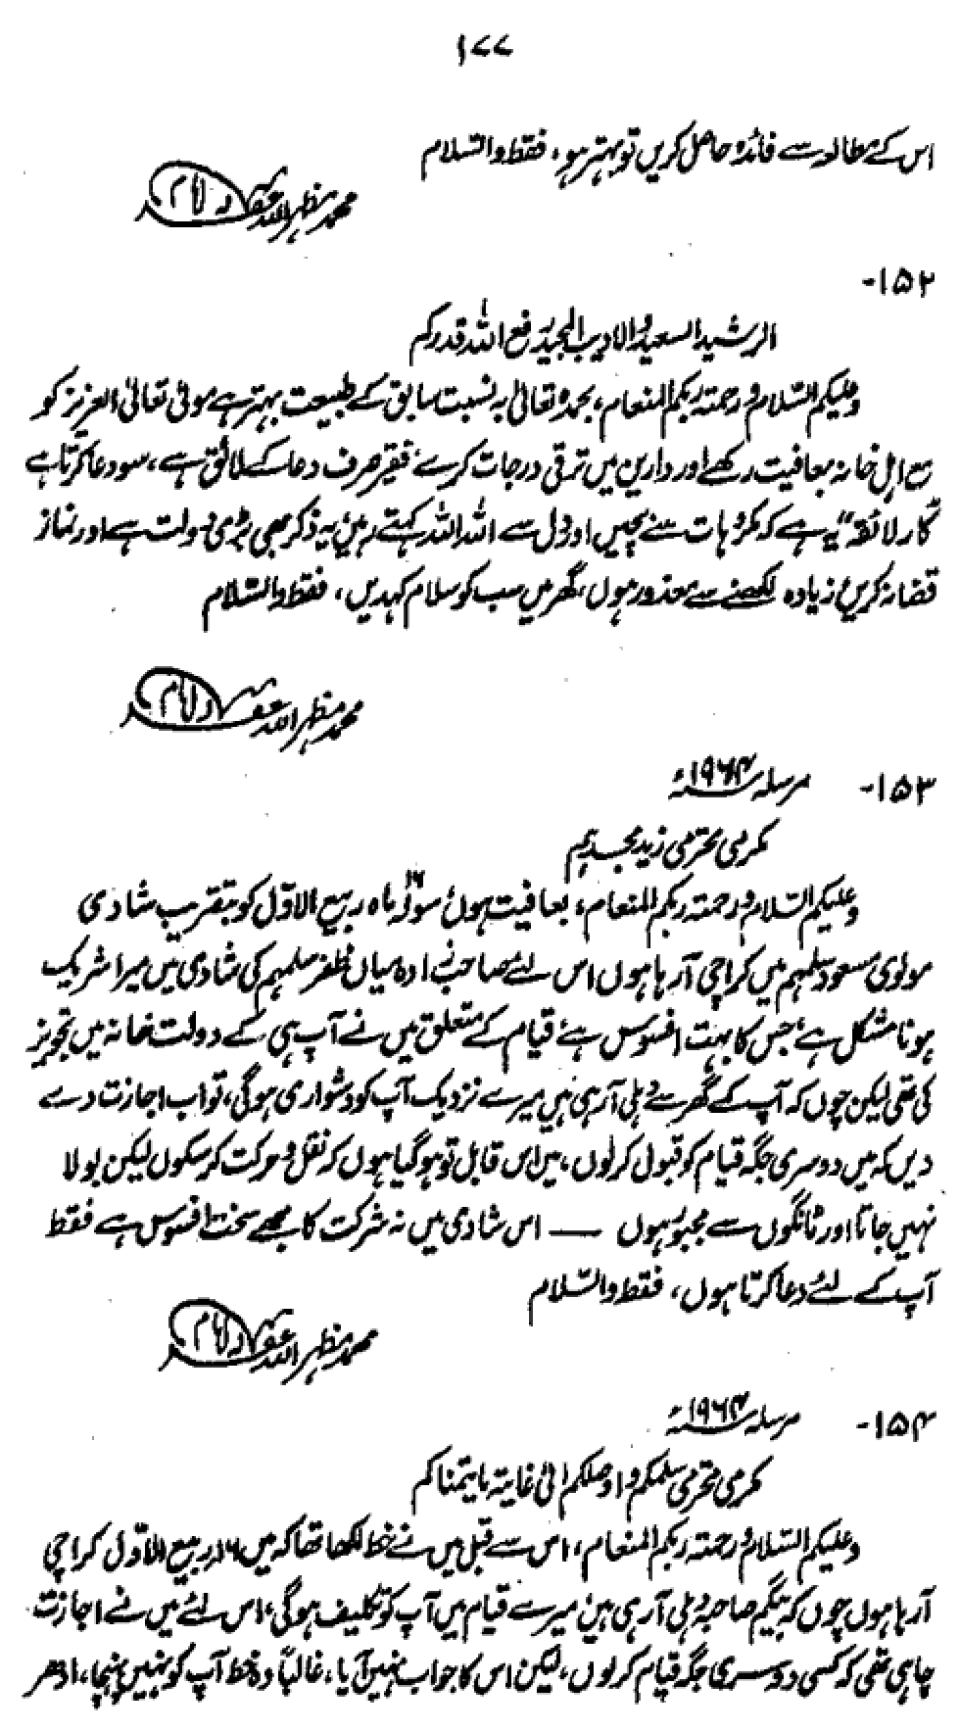 ۱۷۷
اس کے مطالعہ سے فائدہ حاصل کریں تو بہتر ہو، فقط والسّلام
محمد مظہر اللہ غفرلہ
۱۵۲-
الرشید السعید والادیب المجید رفع اللہ قدرکم
وعلیکم السّلام ورحمتہ ربکم المنعام، بحمدہ تعالیٰ بہ نسبت سابق کے طبیعت بہتر ہے مولیٰ تعالیٰ العزیز کو
مع اہل خانہ بعافیت رکھے اور دارین میں ترقی درجات کرے، فقیر صرف دعا کے لائق ہے، سو دعا کرتا ہے
"کار لائقہ" یہ ہے کہ مکروہات سے بچیں اور دل سے اللہ اللہ کہتے رہیں یہ ذکر بھی بڑی دولت ہے اور نماز
قضا نہ کریں زیادہ لکھنے سے معذور ہوں، گھر میں سب کو سلام کہدیں، فقط والسّلام
محمد مظہر اللہ غفرلہ
۱۵۳- مرسلہ ۱۹۶۴ء
مکرمی محترمی زید مجدہم
وعلیکم السّلام ورحمتہ ربکم المنعام، بعافیت ہوں سولہ ۱۶ ماہ ربیع الاوّل کو بتقریب شادی
مولوی مسعود سلمہم میں کراچی آرہا ہوں اس لئے صاحب زادہ میاں ظفر سلمہم کی شادی میں میرا شریک
ہونا مشکل ہے جس کا بہت افسوس ہے قیام کے متعلق میں نے آپ ہی کے دولت خانہ میں تجویز
کی تھی لیکن چوں کہ آپ کے گھر سے دہلی آرہی ہیں میرے نزدیک آپ کو دشواری ہوگی، تو اب اجازت دے
دیں کہ میں دوسری جگہ قیام کو قبول کرلوں، میں اس قابل تو ہوگیا ہوں کہ نقل و حرکت کرسکوں لیکن بولا
نہیں جاتا اور ٹانگوں سے مجبور ہوں —— اس شادی میں نہ شرکت کا مجھے سخت افسوس ہے فقط
آپ کے لئے دعا کرتا ہوں، فقط والسّلام
محمد مظہر اللہ غفرلہ
۱۵۴- مرسلہ ۱۹۶۴ء
مکرمی محترمی سلمکم واوصلکم الیٰ غایتہ مایتمناکم
وعلیکم السّلام ورحمتہ ربکم المنعام، اس سے قبل میں نے خط لکھا تھا کہ میں ۱۶ر ربیع الاوّل کراچی
آرہا ہوں چوں کہ بیگم صاحبہ دہلی آرہی ہیں میرے قیام میں آپ کو تکلیف ہوگی، اس لئے میں نے اجازت
چاہی تھی کہ کسی دوسری جگہ قیام کرلوں، لیکن اس کا جواب نہیں آیا، غالباً وہ خط آپ کو نہیں پہنچا، ادھر